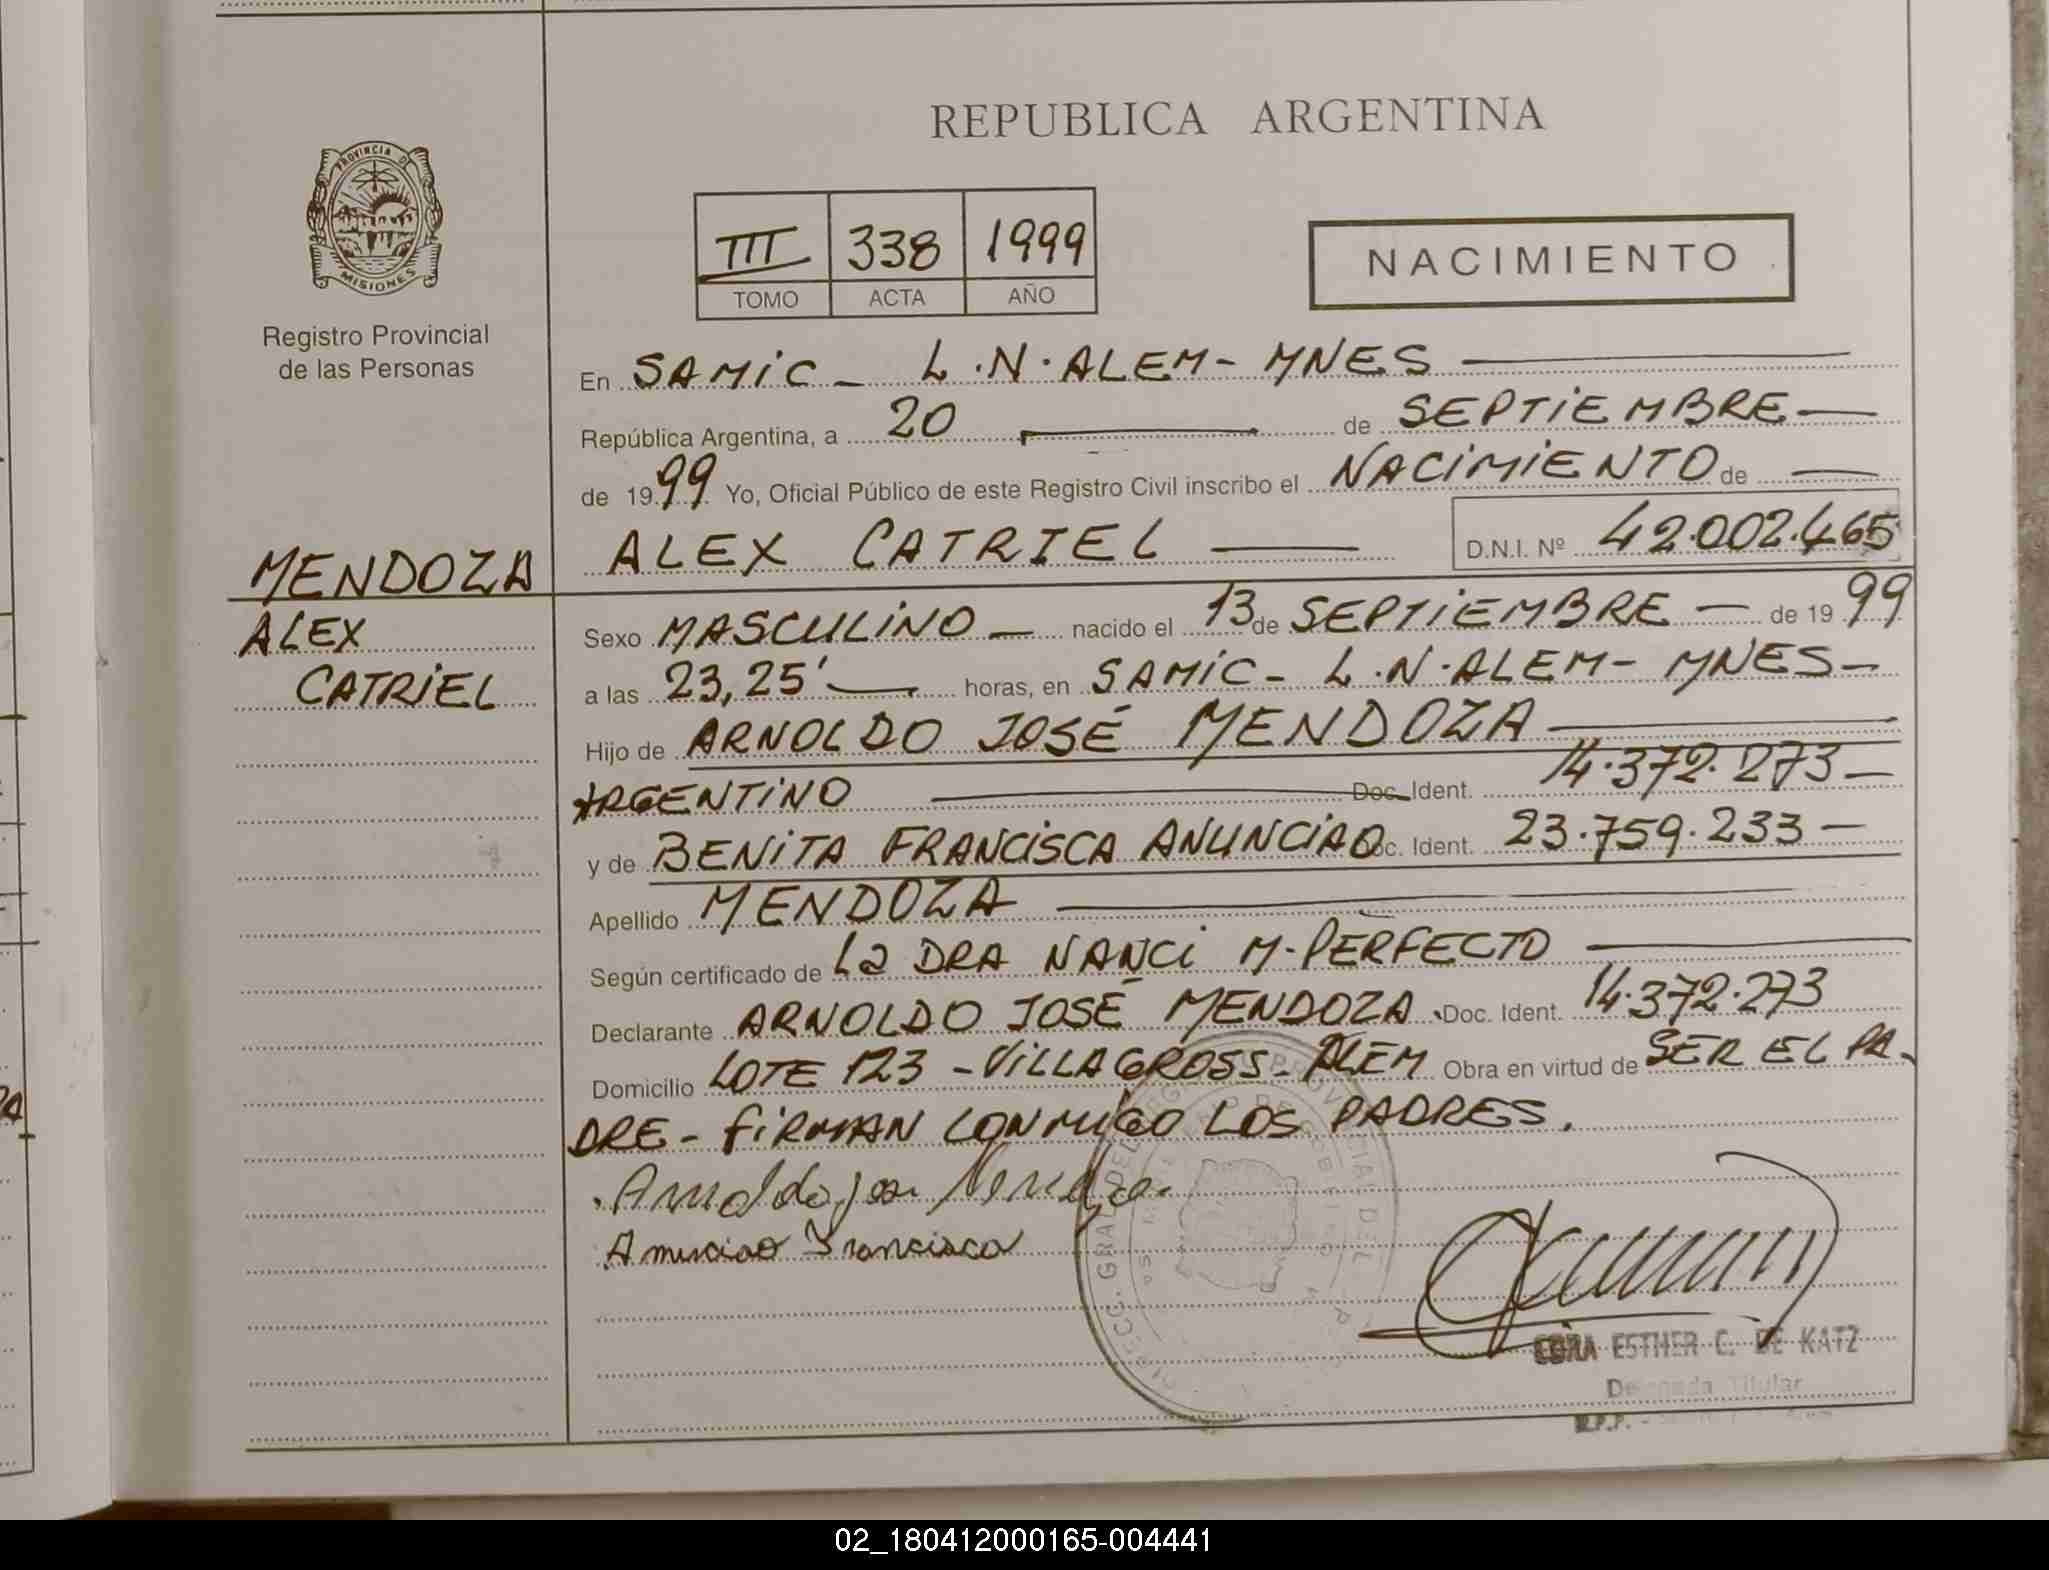 REPUBLICA ARGENTINA
PROVINCIA DE
MISIONES
Registro Provincial
de las Personas
III 338 1999
TOMO ACTA AÑO
NACIMIENTO
En SAMIC - L.N. ALEM - MNES
República Argentina, a 20 de SEPTIEMBRE
de 1999 Yo, Oficial Público de este Registro Civil inscribo el NACIMIENTO de
ALEX CATRIEL D.N.I. Nº 42.002.465
MENDOZA
ALEX
CATRIEL
Sexo MASCULINO nacido el 13 de SEPTIEMBRE de 1999
a las 23,25' horas, en SAMIC - L.N. ALEM - MNES -
Hijo de ARNOLDO JOSÉ MENDOZA
ARGENTINO Doc. Ident. 14.372.273 -
y de BENITA FRANCISCA ANUNCIAO Doc. Ident. 23.759.233 -
Apellido MENDOZA
Según certificado de La DRA NANCI M. PERFECTO
Declarante ARNOLDO JOSÉ MENDOZA Doc. Ident. 14.372.273
Domicilio LOTE 123 - VILLA GROSS - ALEM Obra en virtud de SER EL PA-
DRE - FIRMAN CONMIGO LOS PADRES.
Arnoldo Jose Mendoza
Anunciao Francisca
CORA ESTHER C. DE KATZ
Delegada Titular
R.P.P. -
02_180412000165-004441